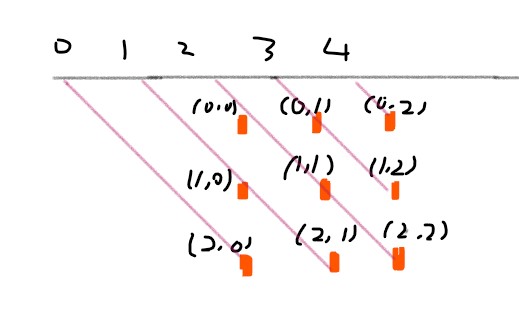 0 1 2 3 4
(0,0) (0,1) (0,2)
(1,0) (1,1) (1,2)
(2,0) (2,1) (2,2)